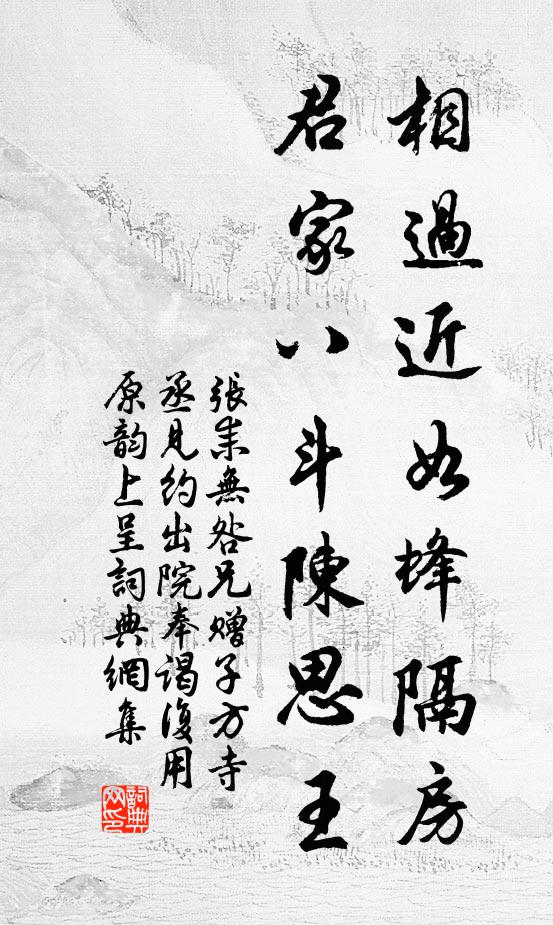 相過近如蜂隔房
君家八斗陳思王
張耒無咎兄贈子方寺
丞見約出院奉謁復用
原韵上呈詞典網集
詞典网印